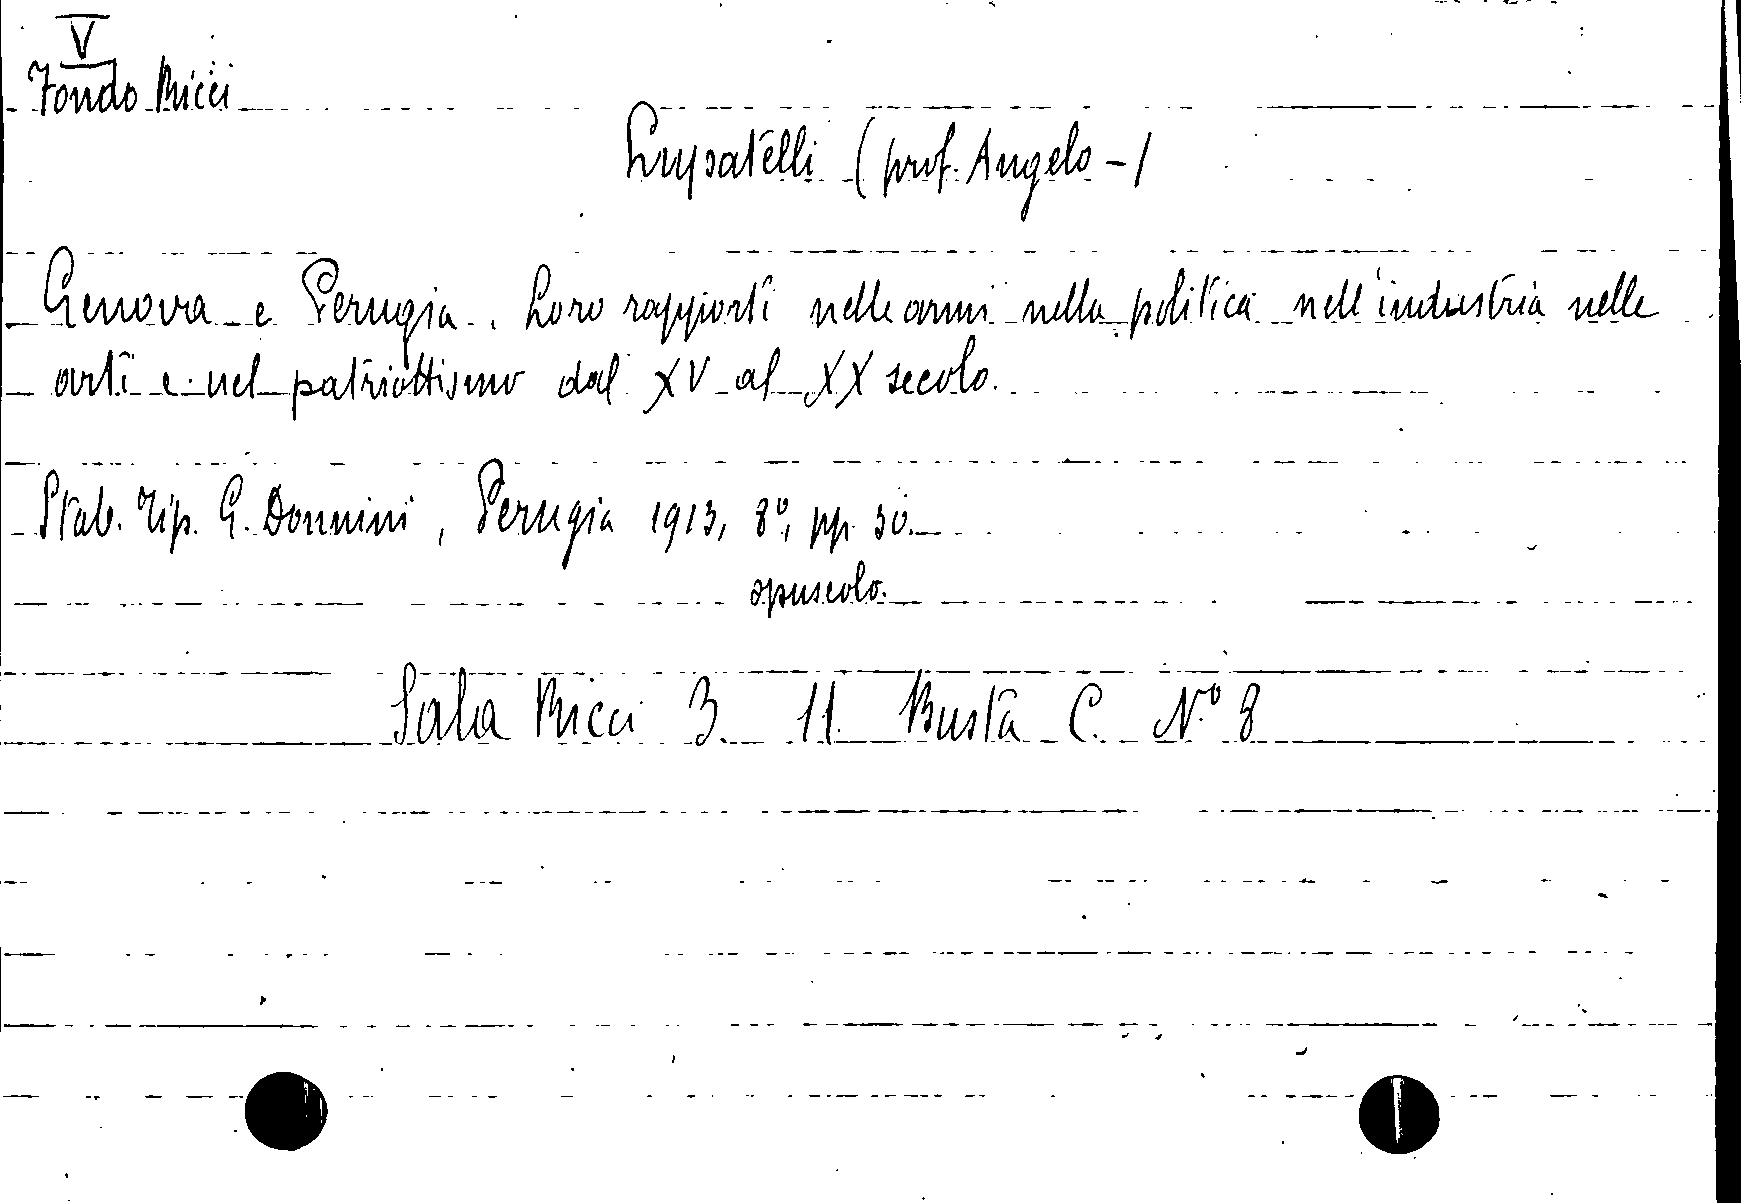 V
Fondo Ricci
Lupatelli (prof. Angelo -)
Genova e Perugia. Loro rapporti nelle armi nella politica nell'industria nelle
arti e nel patriottismo dal XV al XX secolo.
Stab. Tip. G. Donnini, Perugia 1913, 8°, pp. 30.
opuscolo.
Sala Ricci 3. 11. Busta C. N.° 8